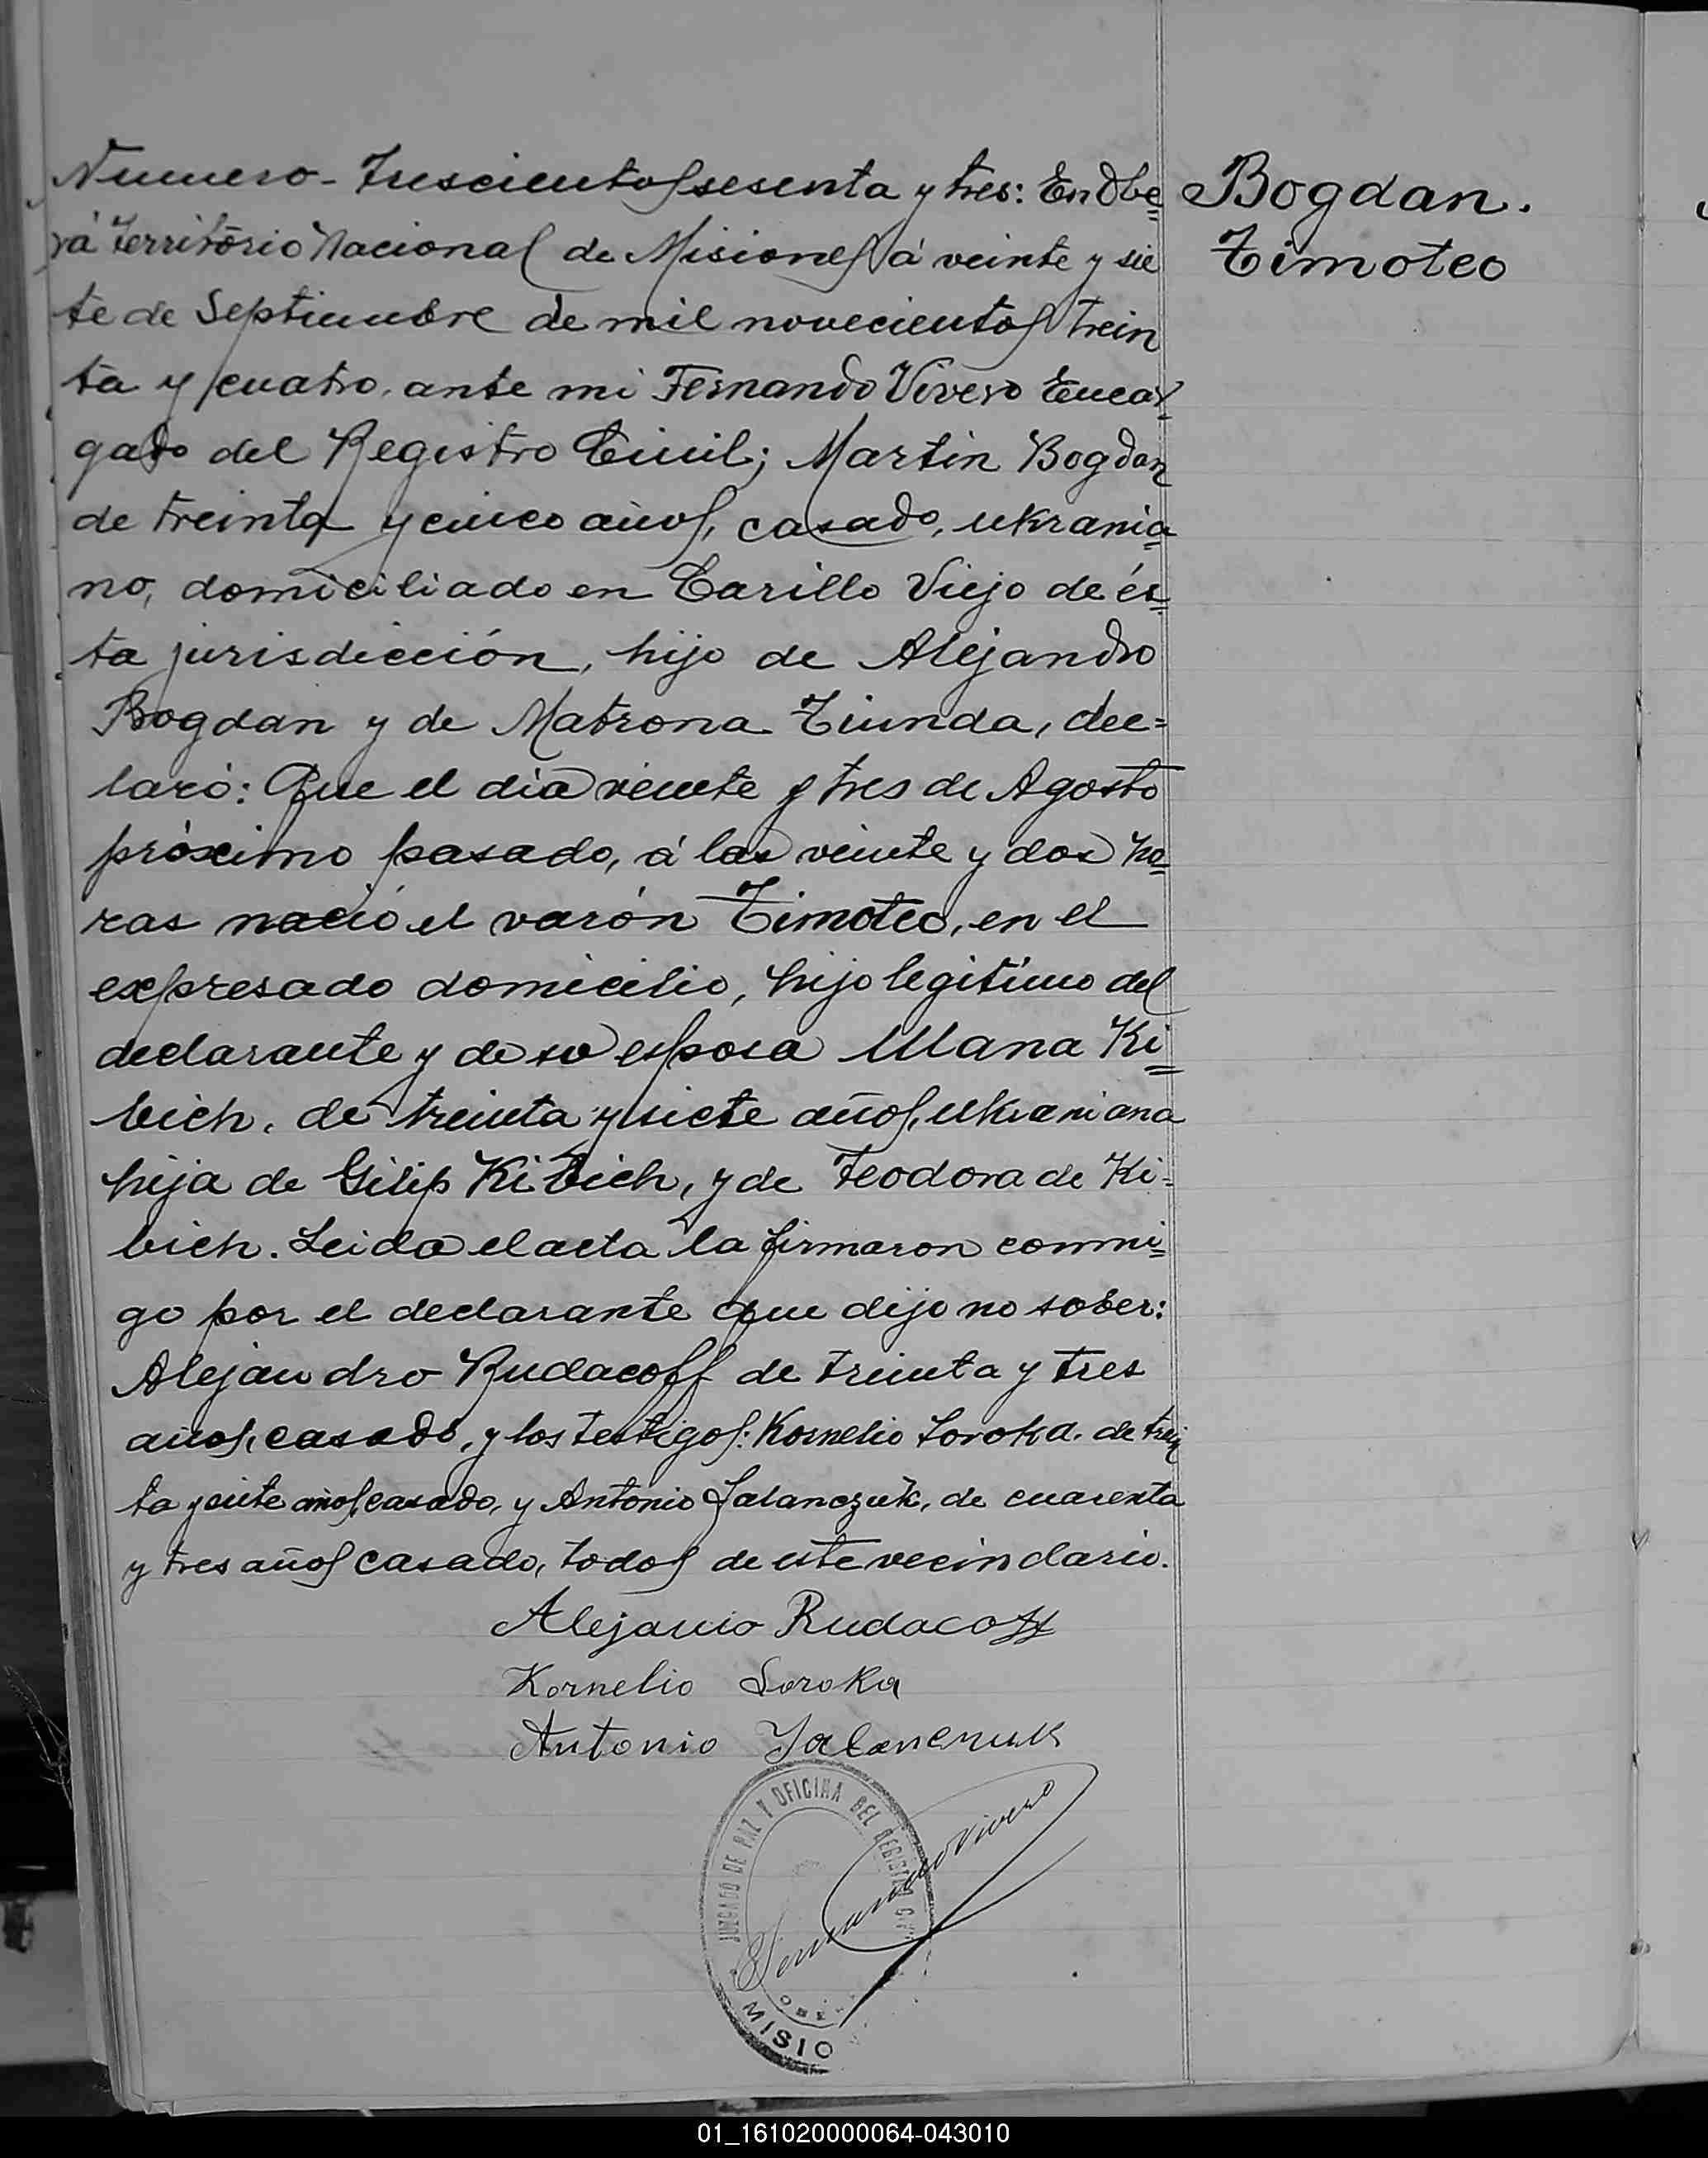 Numero - Trescientos sesenta y tres: En Obe=
rá Territorio Nacional de Misiones á veinte y sie
te de Septiembre de mil novecientos trein
ta y cuatro, ante mi Fernando Vivero Encar=
gado del Registro Civil; Martin Bogdan
de treinta y cinco años, casado, ukrania=
no, domiciliado en Carillo Viejo de és=
ta jurisdicción, hijo de Alejandro
Bogdan y de Matrona Tiunda, dec=
laró: Que el dia veinte y tres de Agosto
próximo pasado, á las veinte y dos ho=
ras nació el varón Timoteo, en el
expresado domicilio, hijo legitimo del
declarante y de su esposa Ulana Ki=
bich, de treinta y siete años, Ukraniana
hija de Gilip Kibich, y de Teodora de Ki=
bich. Leida el acta la firmaron conmi=
go por el declarante que dijo no saber:
Alejandro Rudacoff de treinta y tres
años, casado, y los testigos: Kornelio Soroka, de trein
ta y siete años, casado, y Antonio Jalanczuk, de cuarenta
y tres años casado, todos de este vecindario.
Bogdan.
Timoteo
Rudacoff
Kornelio Soroka
Antonio
Fernando Vivero
JUZGADO DE PAZ Y OFICINA DEL REGISTRO
MISIO
01_161020000064-043010